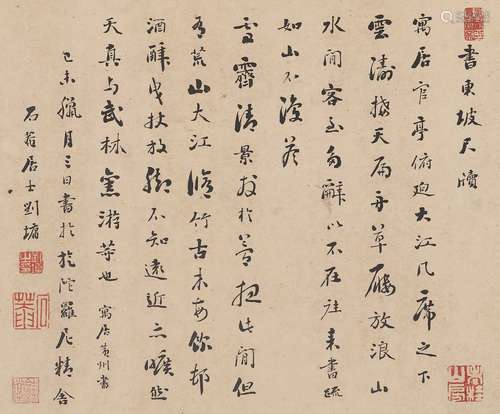 書東坡尺牘
寓居官亭俯迫大江几席之下
雲濤接天扁舟草屨放浪山
水間客至多辭以不在往來書疏
如山不復答
雪齋清景發於夢想此間但
有荒山大江脩竹古木每飲邨
酒醉曳杖放腳不知遠近亦曠然
天真與武林舊游等也 寓居黃州書
己未臘月三日書於陀羅尼精舍
石菴居士劉墉